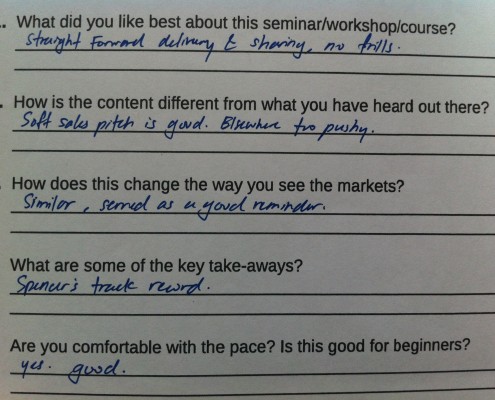 . What did you like best about this seminar/workshop/course?
Straight Forward delivery & sharing, no frills.
. How is the content different from what you have heard out there?
Soft sales pitch is good. Elsewhere too pushy.
How does this change the way you see the markets?
Similar, served as a good reminder.
What are some of the key take-aways?
Spencer's track record.
Are you comfortable with the pace? Is this good for beginners?
yes. good.